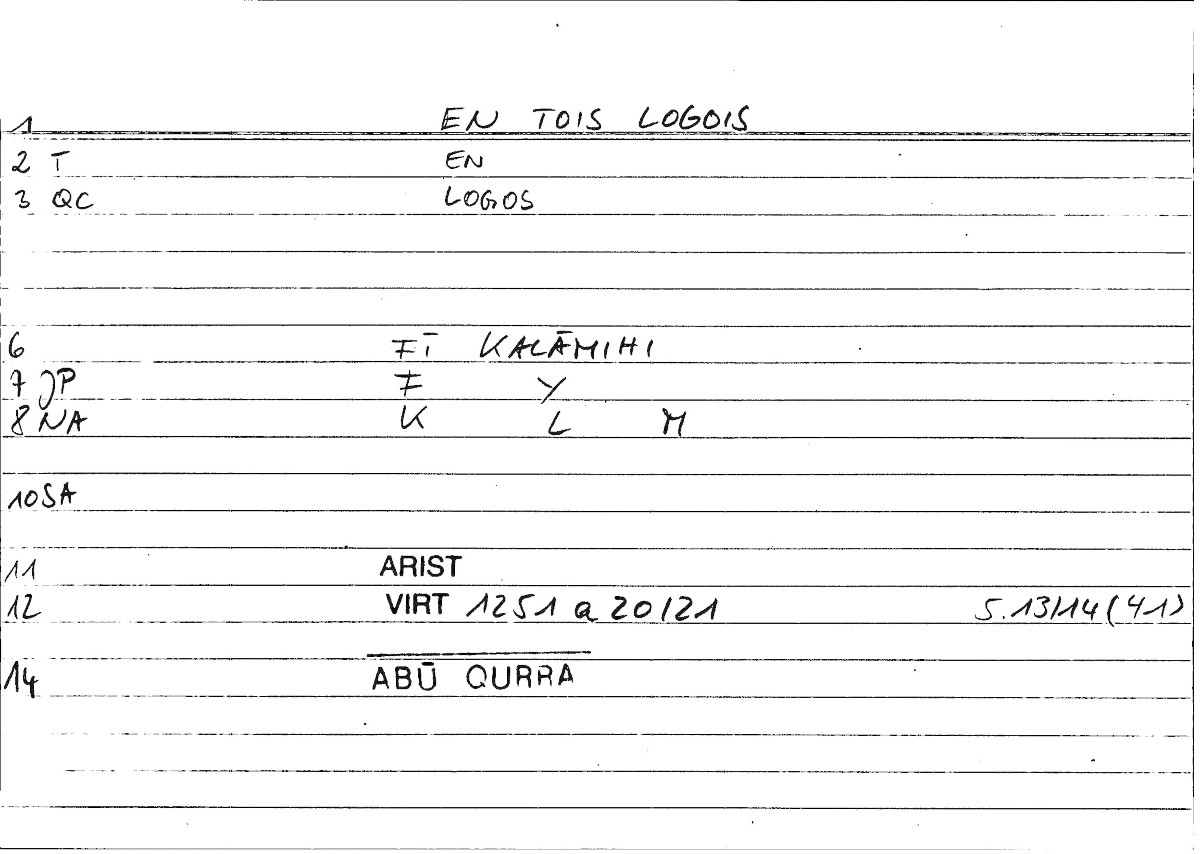 1 EN TOIS LOGOIS
2 T EN
3 QC LOGOS
6 FĪ KALĀMIHI
7 JP F Y
8 NA K L M
10 SA
11 ARIST
12 VIRT 1251 a 20/21 S.13/14 (41)
14 ABŪ QURRA